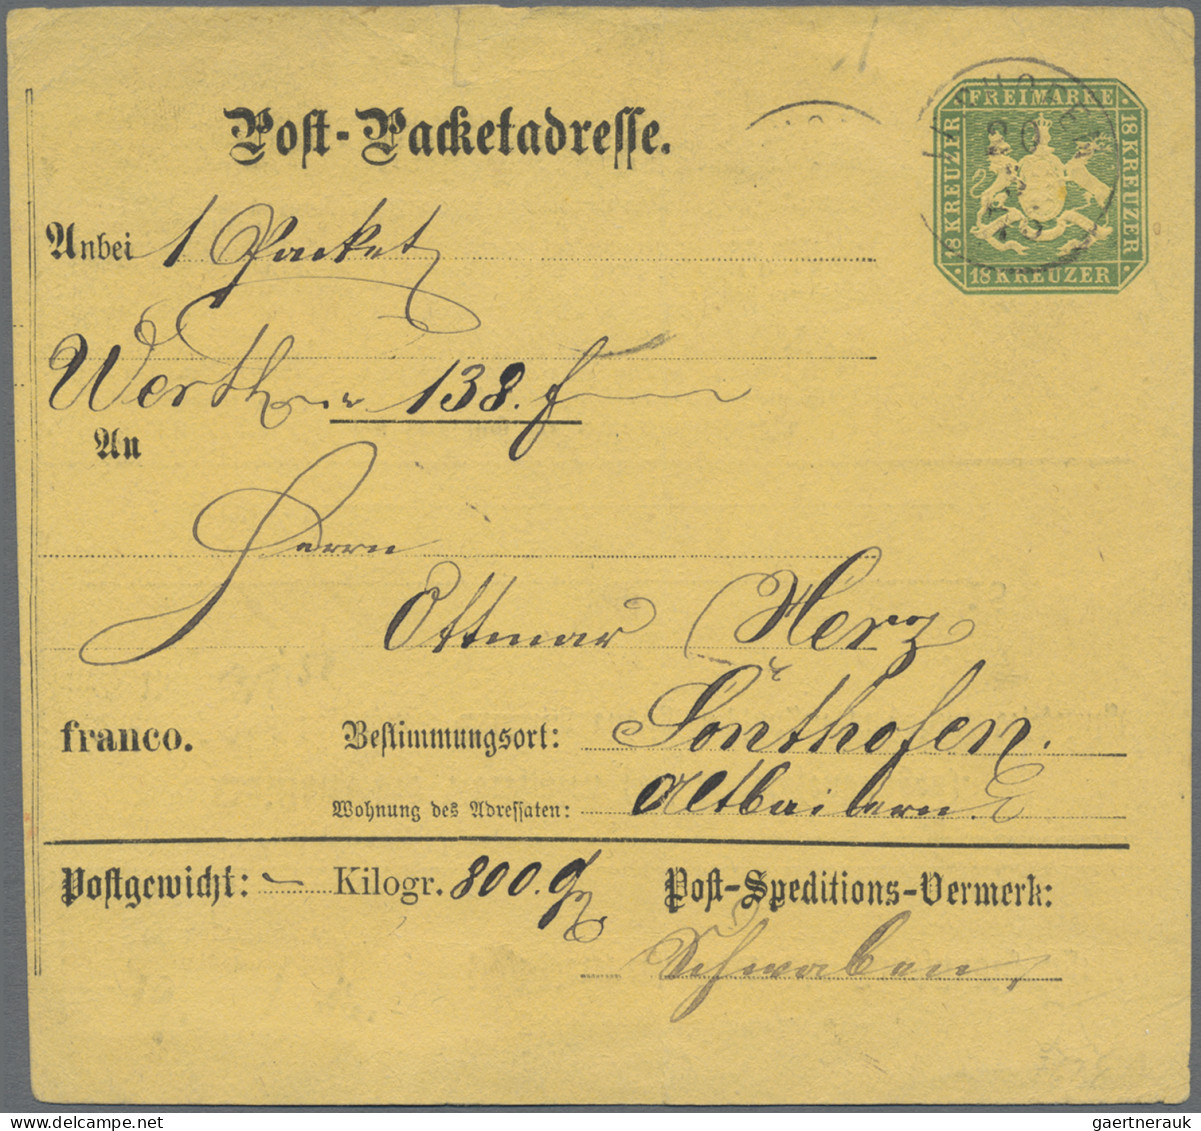 FREIMARKE
18 KREUZER
18 KREUZER
18 KREUZER
Post-Packetadresse.
Anbei 1 Packet
Werth 138. f
An
Herrn
Ottmar Herz
franco. Bestimmungsort: Sonthofen.
Wohnung des Adressaten: Altbaiern
Postgewicht: – Kilogr. 800. Post-Speditions-Vermerk:
Schwaben
gaertnerauk